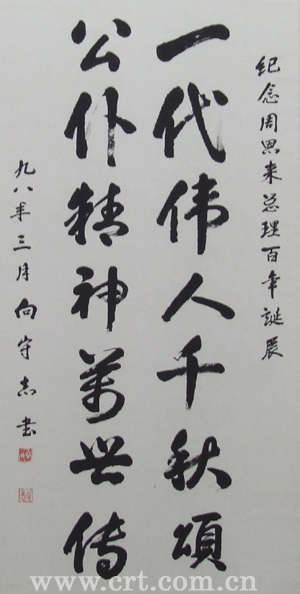 纪念周恩来总理百年誕辰
一代伟人千秋頌
公仆精神萬世傳
九八年三月向守志書
www.crt.com.cn